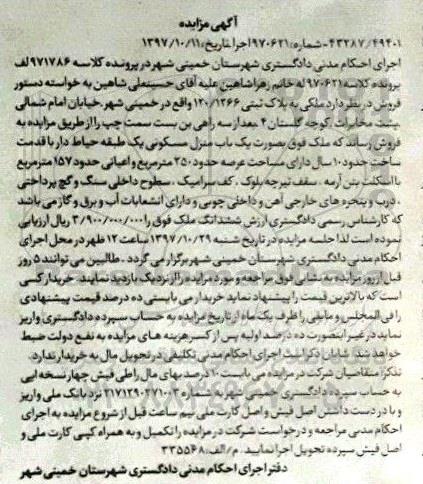 آگهی مزایده
۴۳۲۸۷/۴۹۴۰۱-شماره:۹۷۰۶۲۱اجرا.تاریخ:۱۳۹۷/۱۰/۱۱
اجرای احکام مدنی دادگستری شهرستان خمینی شهر در پرونده کلاسه ۹۷۱۷۸۶لف
پرونده کلاسه ۹۷۰۶۲۱له خانم زهرا شاهین علیه آقای حسینعلی شاهین به خواسته دستور
فروش در نظر دارد ملکی به پلاک ثبتی ۱۲۰/۱۲۶۶ واقع در خمینی شهر.خیابان امام شمالی
پشت مخابرات. کوچه گلستان ۴ .بعد از سه راهی بن بست سمت چپ را از طریق مزایده به
فروش رساند که ملک فوق بصورت یک باب منزل مسکونی یک طبقه حیاط دار با قدمت
ساخت حدود ۱۰ سال دارای مساحت عرصه حدود ۲۵۰ مترمربع و اعیانی حدود ۱۵۷ مترمربع
با اسکلت بتن آرمه . سقف تیرچه بلوک . کف سرامیک . سطوح داخلی سنگ و گچ پرداختی
. درب و پنجره های خارجی آهن و داخلی چوبی و دارای انشعابات آب و برق و گاز می باشد
که کارشناس رسمی دادگستری ارزش ششدانگ ملک فوق را ۳/۹۰۰/۰۰۰/۰۰۰ ریال ارزیابی
نموده است لذا جلسه مزایده در تاریخ شنبه ۱۳۹۷/۱۰/۲۹ ساعت ۱۲ ظهر در محل اجرای
احکام مدنی دادگستری شهرستان خمینی شهر برگزار می گردد . طالبین می توانند ۵ روز
قبل از روز مزایده به نشانی فوق مراجعه و مورد مزایده را از نزدیک بازدید نمایند. خریدار کسی
است که بالاترین قیمت را پیشنهاد نماید خریدار می بایستی ده درصد قیمت پیشنهادی
را فی المجلس و مابقی را ظرف یک ماه از تاریخ مزایده به حساب سپرده دادگستری واریز
نماید در غیر اینصورت ده درصد اولیه پس از کسر هزینه های مزایده به نفع دولت ضبط
خواهد شد. شایان ذکر است اجرای احکام مدنی تکلیفی در تحویل مال به خریدار ندارد.
تذکر: متقاضیان شرکت در مزایده می بایست ۱۰ درصد بهای مال را طی فیش چهار نسخه ایی
به حساب سپرده دادگستری خمینی شهر به شماره نزد بانک ملی واریز
و با در دست داشتن اصل فیش و اصل کارت ملی نیم ساعت قبل از شروع مزایده به اجرای
احکام مدنی مراجعه و درخواست شرکت در مزایده را تکمیل و به همراه کپی کارت ملی و
اصل فیش سپرده تحویل اجرا نمایید. م/الف:۳۳۵۵۶۸
دفتر اجرای احکام مدنی دادگستری شهرستان خمینی شهر